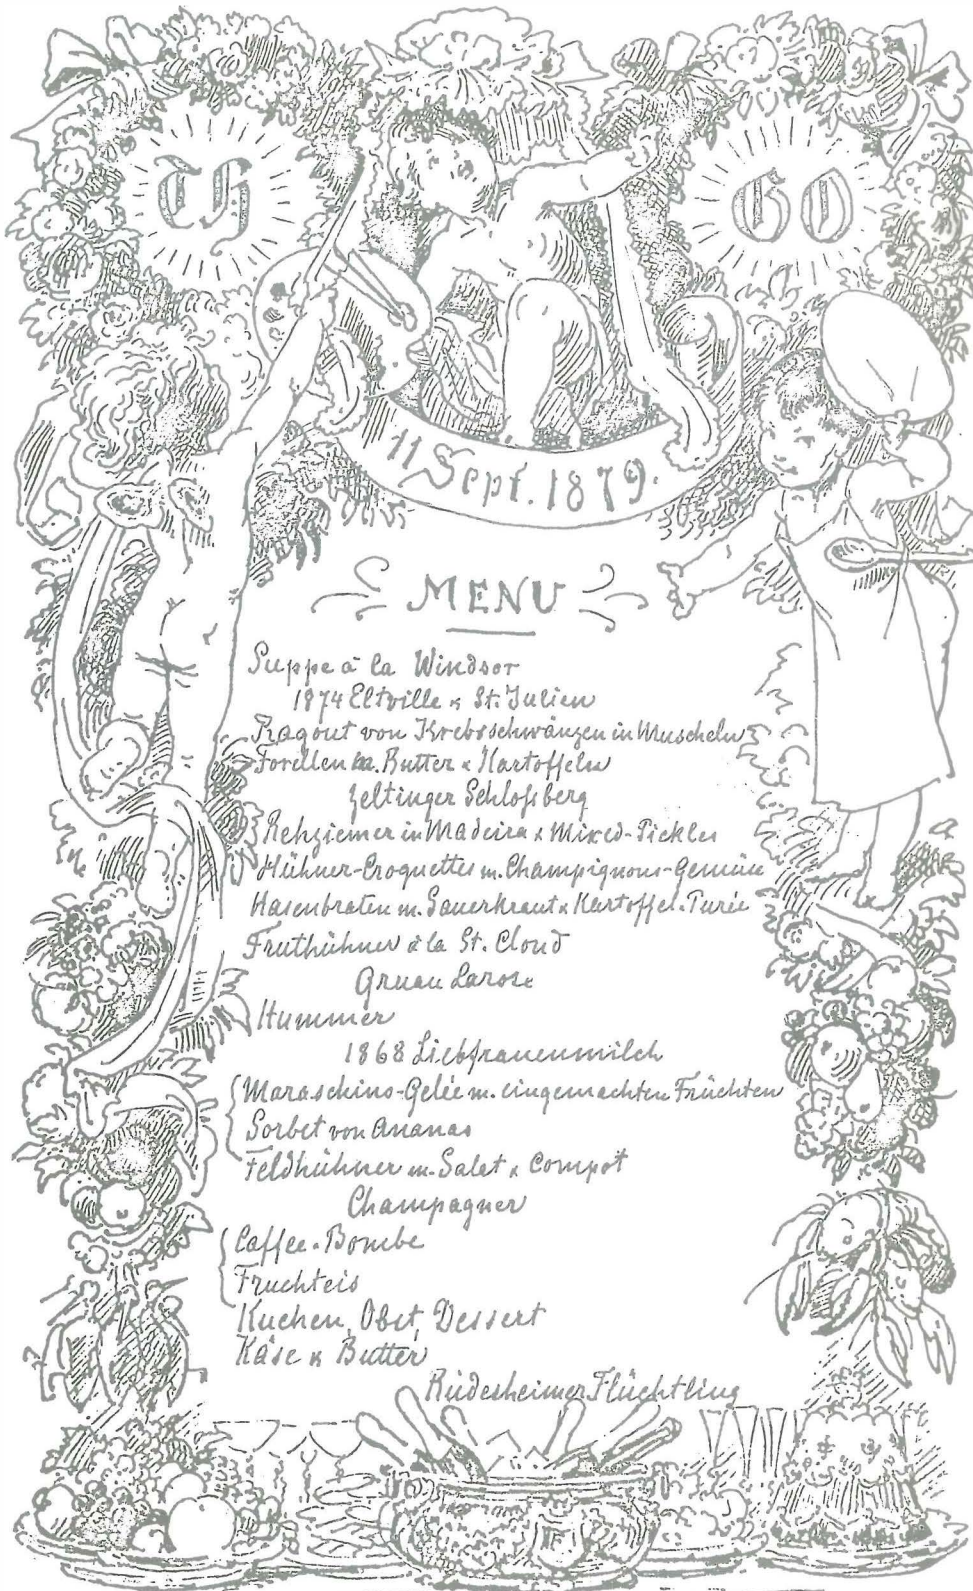 60
11 Sept. 1879.
MENU
Suppe à la Windsor
1874 Eltville & St. Julien
Ragout von Krebsschwänzen in Muscheln
Forellen m. Butter & Kartoffeln
Zeltinger Schloßberg
Rehziemer in Madeira & Mixed-Pickles
Hühner-Croquettes m. Champignons-Gemüse
Hasenbraten m. Sauerkraut & Kartoffel-Purée
Truthühner à la St. Cloud
Gruau Larose
Hummer
1868 Liebfrauenmilch
Maraschino-Gelée m. eingemachten Früchten
Sorbet von Ananas
Feldhühner m. Salat & Compot
Champagner
Caffee-Bombe
Fruchteis
Kuchen, Obst, Dessert
Käse & Butter
Rüdesheimer Flüchtling